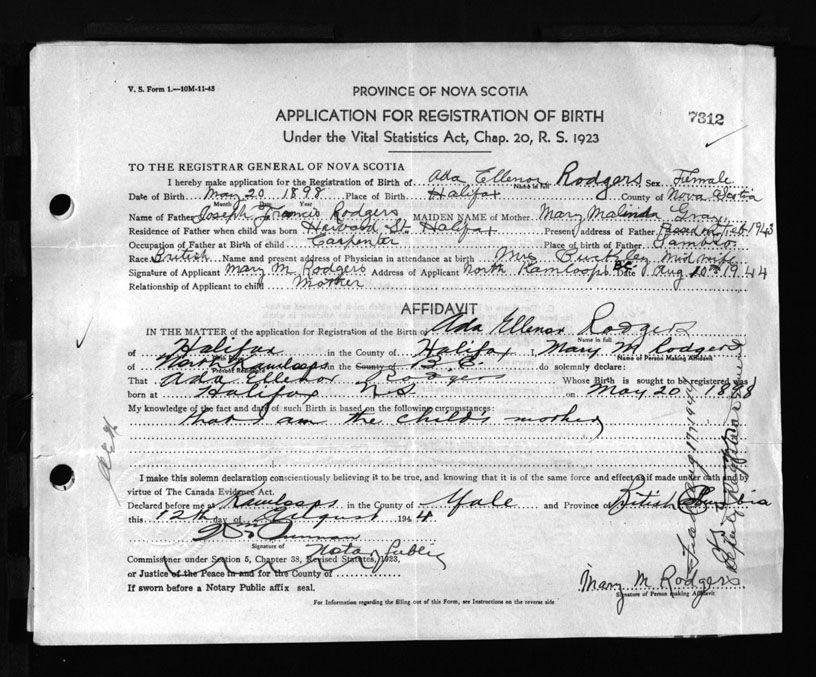 V. S. Form 1.—10M-11-43
PROVINCE OF NOVA SCOTIA
APPLICATION FOR REGISTRATION OF BIRTH
7312
Under the Vital Statistics Act, Chap. 20, R. S. 1923
TO THE REGISTRAR GENERAL OF NOVA SCOTIA
I hereby make application for the Registration of Birth of Ada Ellenor Rodgers Sex Female
Name in full
Date of Birth May 20 1898 Place of Birth Halifax County of Nova Scotia
Month Day Year
Name of Father Joseph Francis Rodgers MAIDEN NAME of Mother Mary Malinda Gray
Residence of Father when child was born St. Halifax Present address of Father Feb 1943
Occupation of Father at Birth of child Carpenter Place of birth of Father Sambro
Race British Name and present address of Physician in attendance at birth Mrs Midwife
Signature of Applicant Mary M Rodgers Address of Applicant North Kamloops B.C. Date Aug 10th 1944
Relationship of Applicant to child Mother
AFFIDAVIT
IN THE MATTER of the application for Registration of the Birth of Ada Ellenor Rodgers
Name in full
of Halifax in the County of Halifax ; Mary M Rodgers
Name of Person Making Affidavit
of North Kamloops in the County of B.C. do solemnly declare:
Present Residence
That Ada Ellenor Rodgers Whose Birth is sought to be registered was
born at Halifax N.S on May 20 1898
My knowledge of the fact and date of such Birth is based on the following circumstances:
that I am the child's mother
I make this solemn declaration conscientiously believing it to be true, and knowing that it is of the same force and effect as if made under oath and by
virtue of The Canada Evidence Act.
Declared before me at Kamloops in the County of Yale and Province of British Columbia
this 12th day of August 1944
Signature of
Notary Public
Commissioner under Section 5, Chapter 38, Revised Statutes, 1923,
or Justice of the Peace in and for the County of
If sworn before a Notary Public affix seal.
Mary M Rodgers
Signature of Person making Affidavit
For Information regarding the filling out of this Form, see Instructions on the reverse side
Filed Aug 17 1944
Deputy Registrar General